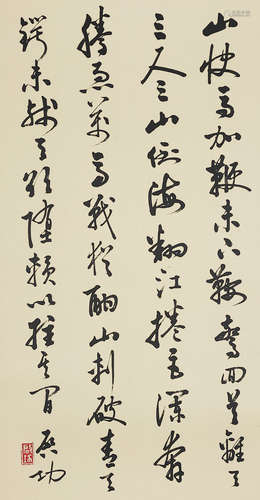 山快马加鞭未下鞍惊回首离天
三尺三山倒海翻江卷巨澜奔
腾急万马战犹酣山刺破青天
锷未残天欲堕赖以拄其间启功